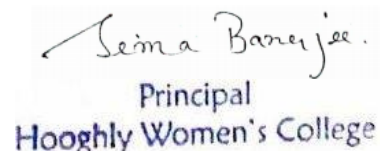 Seema Banerjee.
Principal
Hooghly Women's College